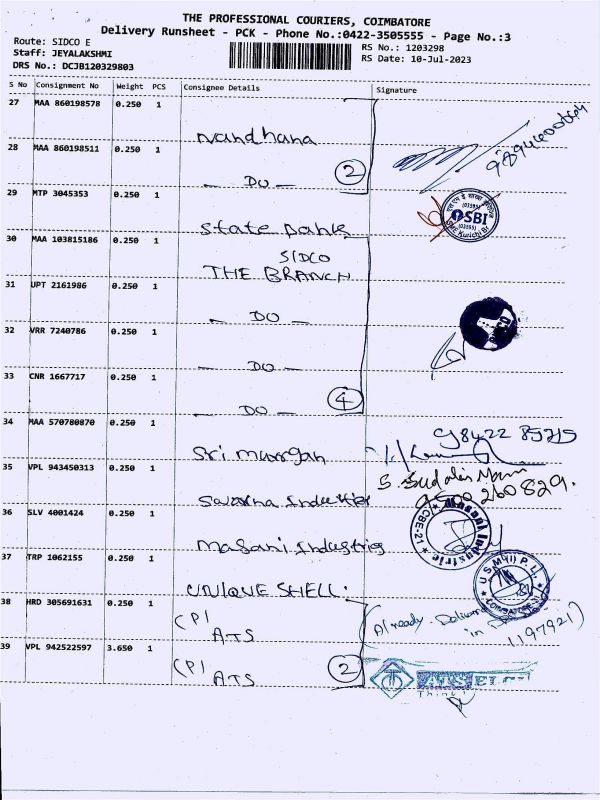 THE PROFESSIONAL COURIERS, COIMBATORE
Delivery Runsheet - PCK - Phone No.:0422-3505555 - Page No.:3
Route: SIDCO E
Staff: JEYALAKSHMI
DRS No.: DCJB120329803
RS No.: 1203298
RS Date: 10-Jul-2023
S No Consignment No Weight PCS Consignee Details Signature
27 MAA 860198578 0.250 1
Nandhana
9894400664
28 MAA 860198511 0.250 1
— DO — 2
29 MTP 3045353 0.250 1
State Bank
(03595)
SBI
(03595)
Kurichi Br
30 MAA 103815186 0.250 1
SIDCO
THE BRANCH
31 UPT 2161986 0.250 1
— DO —
32 VRR 7240786 0.250 1
— DO —
33 CNR 1667717 0.250 1
— DO — 4
34 MAA 570780870 0.250 1
Sri Murgan
98422 85715
35 VPL 943450313 0.250 1
S. Sudalai Mani
9500260829.
36 SLV 4001424 0.250 1
Masani Industries
CBE-21
Masani Industrie
37 TRP 1062155 0.250 1
UNIQUE SHELL.
U S M (I) P. L.,
COIMBATORE
38 HRD 305691631 0.250 1
(P)
ATS
(Already Delivered
in
1197921)
39 VPL 942522597 3.650 1
(P)
ATS 2
ATS ELGI
Think